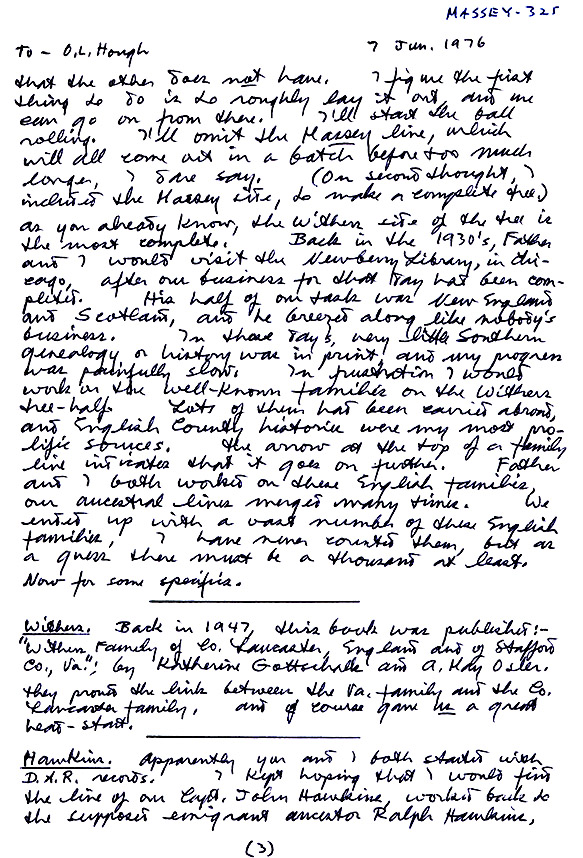 MASSEY-325
To - O.L. Hough 7 Jun. 1976
that the other does not have. I figure the first
thing to do is to roughly lay it out, and we
can go on from there. I'll start the ball
rolling. I'll omit the Massey line, which
will all come out in a batch before too much
longer, I dare say. (On second thought, I
included the Massey side, to make a complete tree.)
as you already know, the Withers side of the tree is
the most complete. Back in the 1930's, Father
and I would visit the Newberry Library, in Chi-
cago, after our business for that day had been com-
pleted. His half of our task was New England
and Scotland, and he breezed along like nobody's
business. In those days, very little Southern
genealogy or history was in print, and my progress
was painfully slow. In frustration I would
work on the well-known families on the Withers
tree-half. Lots of them had been carried abroad,
and English County histories were my most pro-
lific sources. The arrow at the top of a family
line indicates that it goes on further. Father
and I both worked on these English families,
our ancestral lines merged many times. We
ended up with a vast number of these English
families, I have never counted them, but as
a guess there must be a thousand at least.
Now for some specifics.
Withers. Back in 1947, this book was published:-
"Withers Family of Co. Lancaster, England and of Stafford
Co., Va."; by Katherine Gottschalk and A. Hay Osler.
They proved the link between the Va. family and the Co.
Lancaster family, and of course gave us a great
head-start.
Hawkins. Apparently you and I both started with
D.A.R. records. I kept hoping that I would find
the line of our Capt. John Hawkins, worked back to
the supposed emigrant ancestor Ralph Hawkins,
(3)